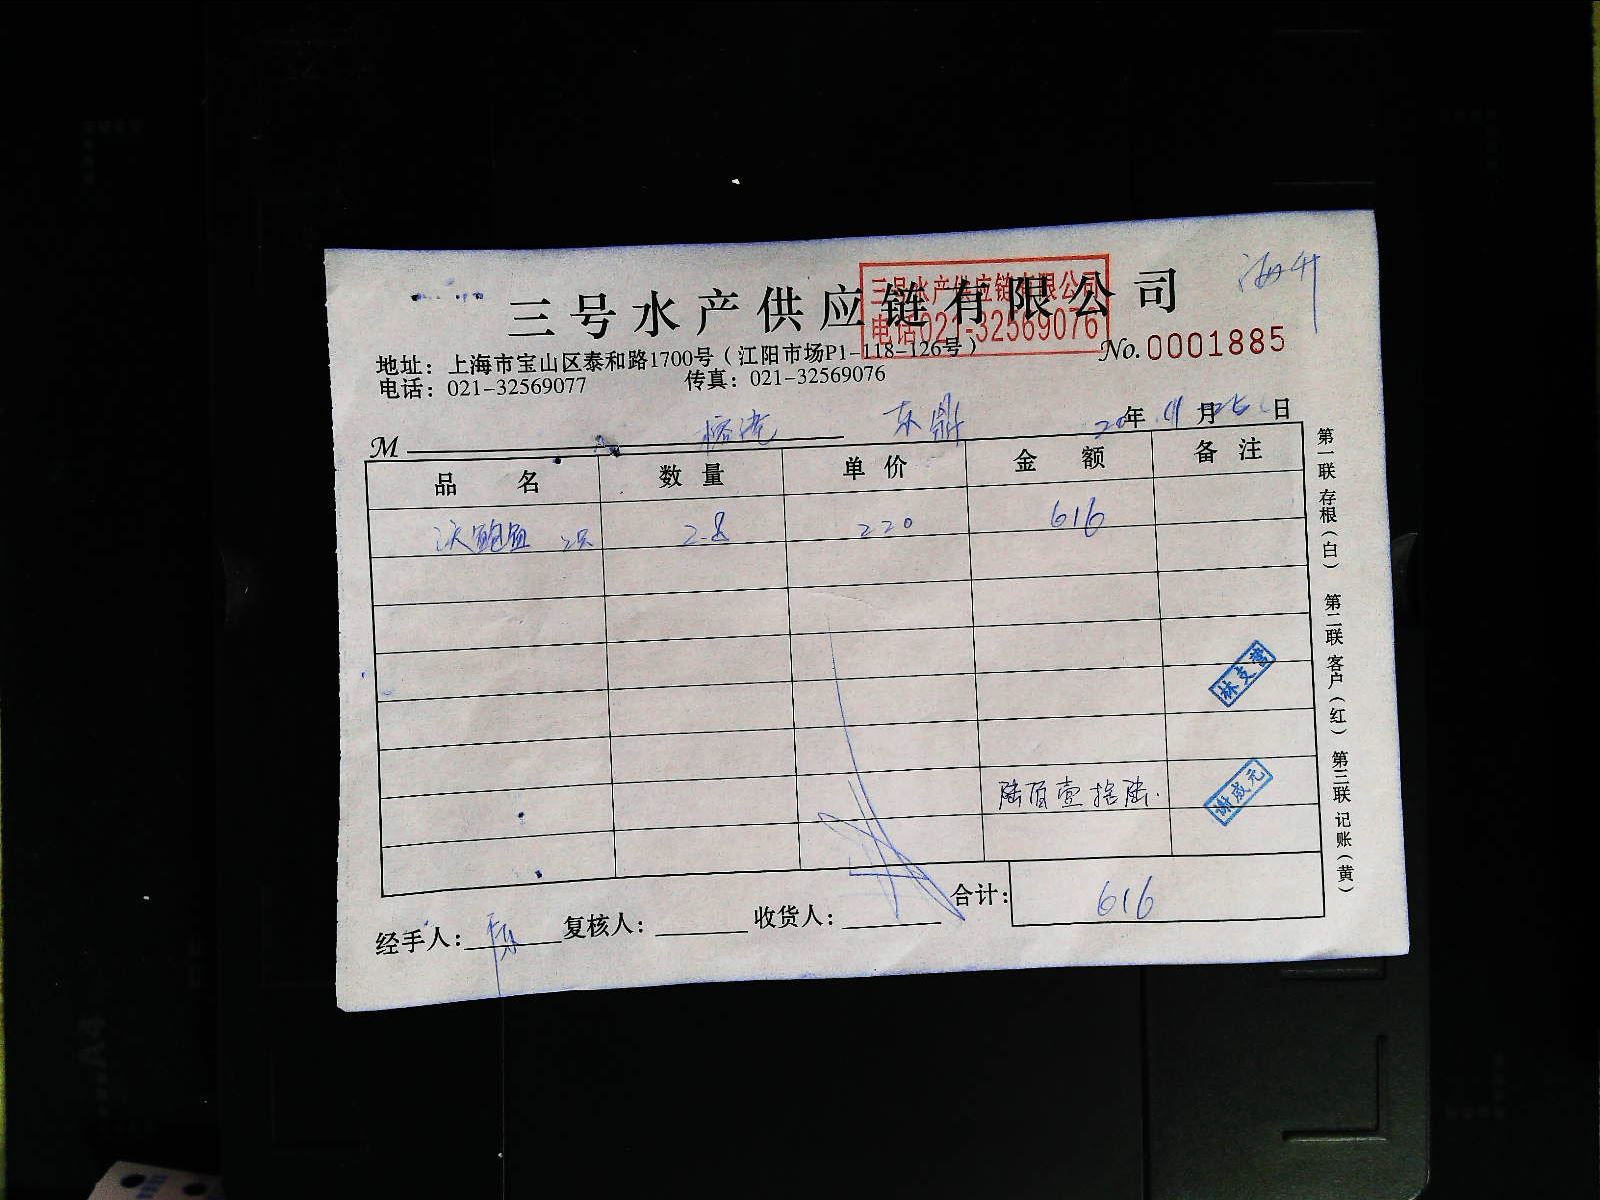 海升
三号水产供应链有限公司
三号水产供应链有限公司
电话021-32569076
No.0001885
地址：上海市宝山区泰和路1700号（江阳市场P1-118-126号）
电话：021-32569077 传真：021-32569076
M 榕港 东鼎 20年 01月 日
品名 数量 单价 金额 备注
鲍鱼 2只 2.8 220 616
林支营
陆百壹拾陆.
谢成元
合计： 616
经手人： 复核人： 收货人：
第一联 存根（白） 第二联 客户（红） 第三联 记账（黄）